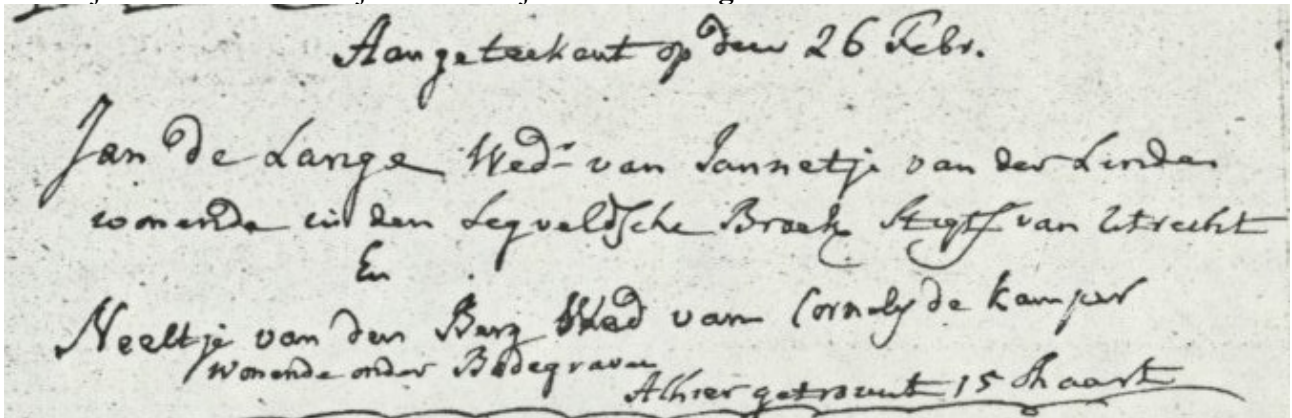 Aangeteekent op den 26 Febr.
Jan de Lange Wedr van Jannetje van der Linden
wonende in den Legveldsche Broek Stigts van Utrecht
En
Neeltje van den Burg Wed van Cornelis de kamper
wonende onder Bodegraven
Alhier getrouwt 15 Maart